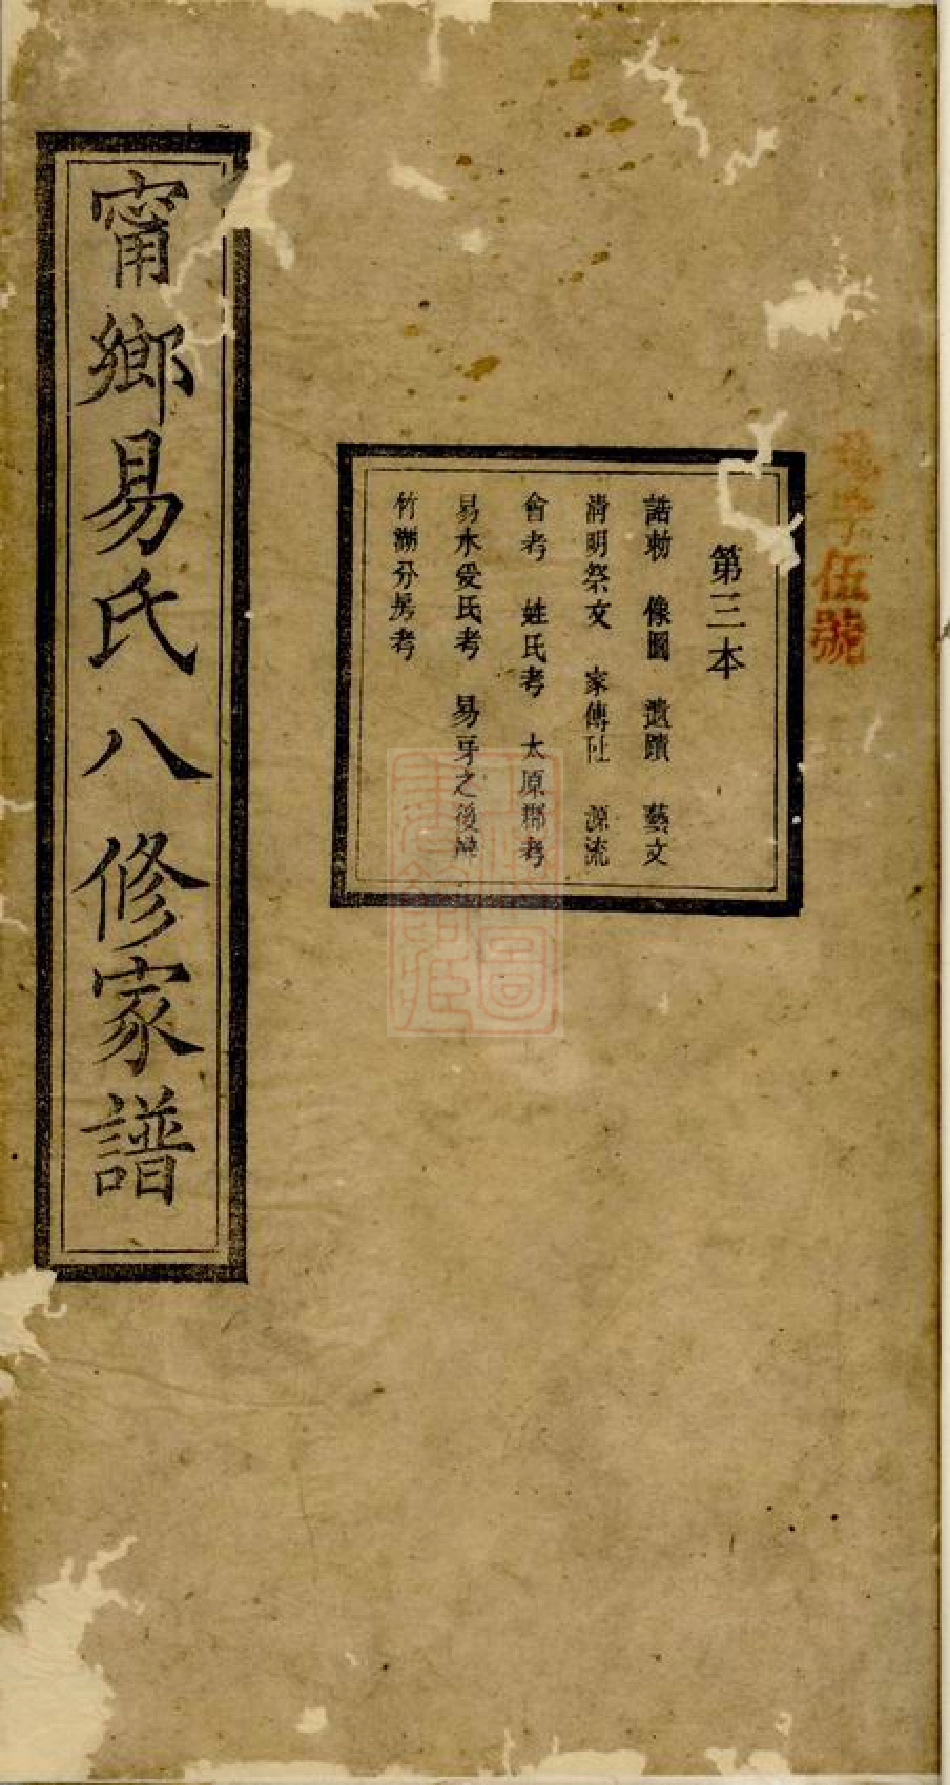 伍號
第三本
誥勅 像圖 遺蹟 藝文
清明祭文 家傳 源流
會考 姓氏考 太原郡考
易水受氏考 易牙之後辨
竹湖分房考
甯鄉易氏八修家譜